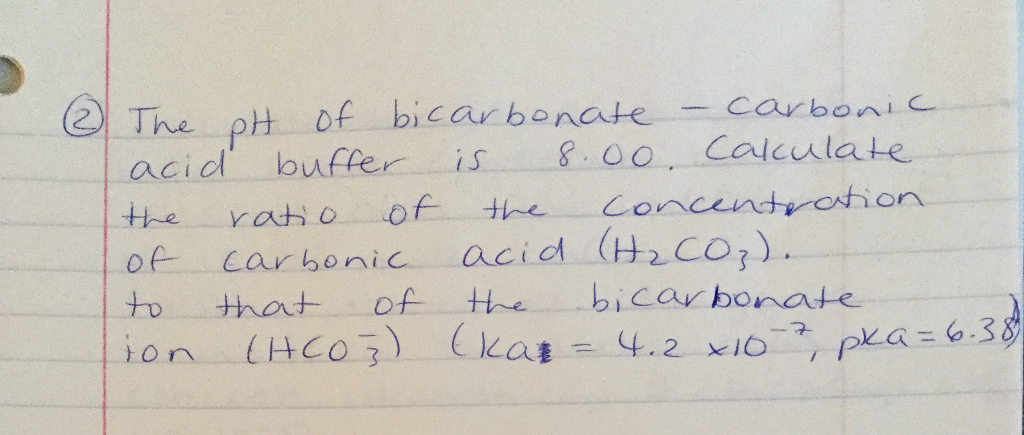 ② The pH of bicarbonate - carbonic
acid buffer is 8.00. Calculate
the ratio of the concentration
of carbonic acid (H₂CO₃).
to that of the bicarbonate
ion (HCO₃⁻) (ka = 4.2 x10⁻⁷, pka = 6.38)